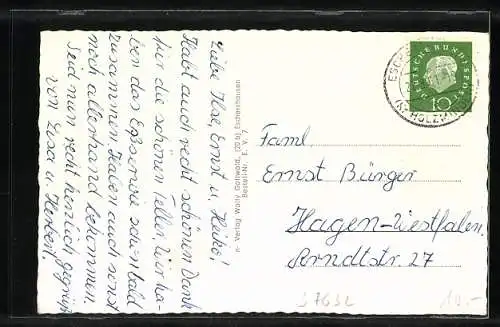 Liebe Ilse, Ernst u. Heike!
Habt auch recht schönen Dank
für die schönen Teller. Wir ha-
ben das Eßservice schon bald
zusammen. Haben auch sonst
noch allerhand bekommen.
Seid nun recht herzlich gegrüßt
von Lisa u. Herbert
Gottwald, (20 b) Eschershausen
Bestell-Nr. E. V. 7
DEUTSCHE BUNDESPOST
10
HOLZMINDEN
Faml.
Ernst Bürger
Hagen-Westfalen.
Arndtstr. 27
37632
10.-